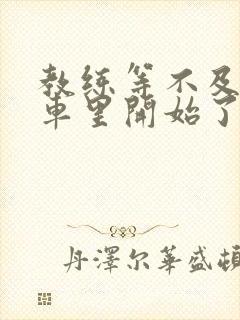 教练等不及
車里開始了
丹澤尔華盛頓